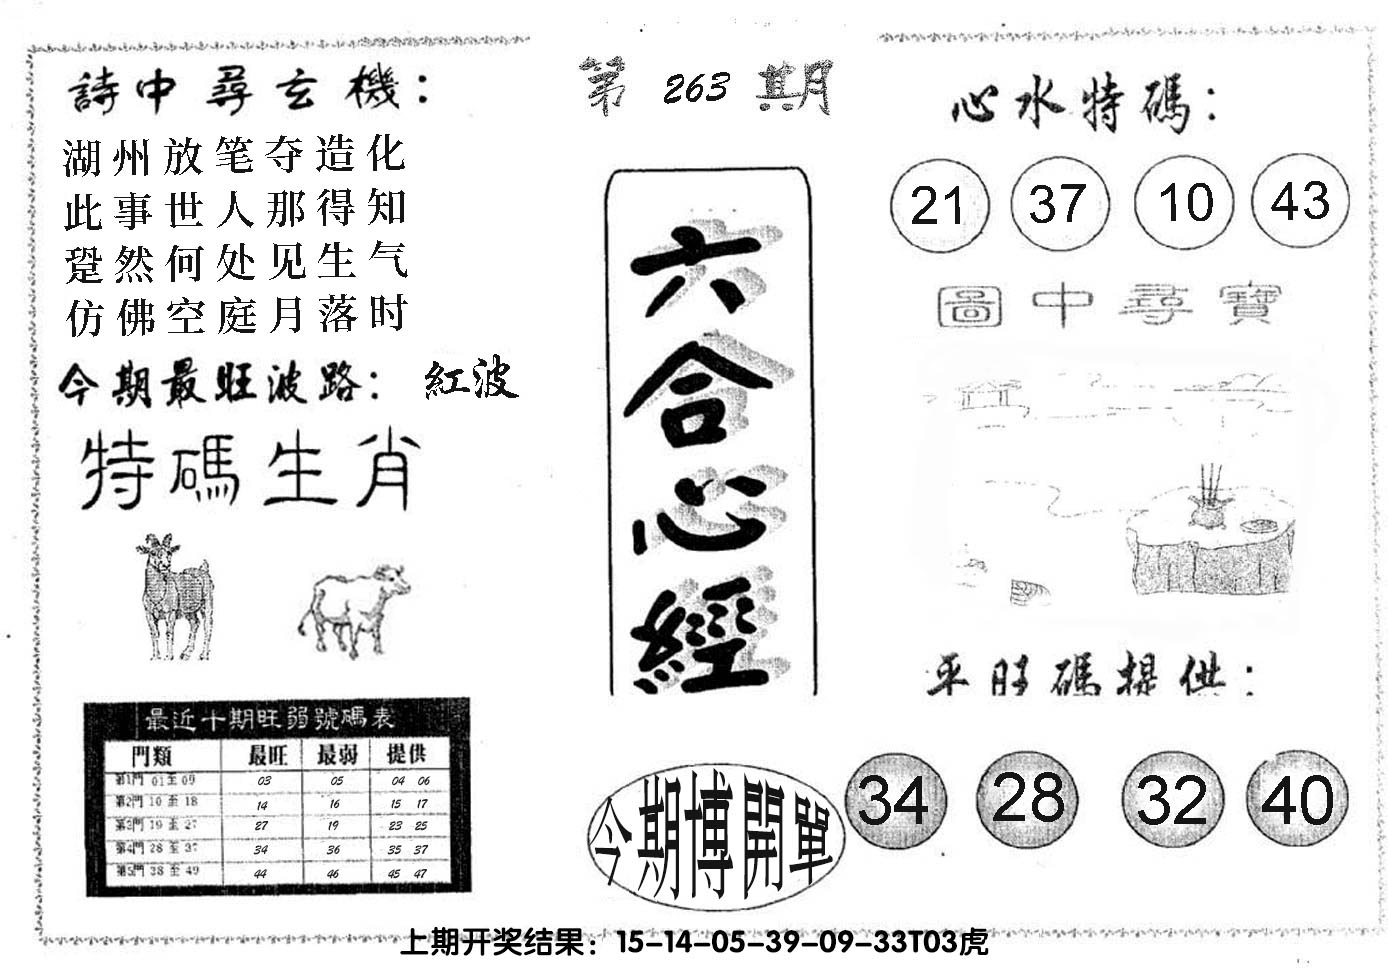 第 263 期
詩中尋玄機：
湖州放笔夺造化
此事世人那得知
跫然何处见生气
仿佛空庭月落时
今期最旺波路：紅波
特碼生肖
最近十期旺弱號碼表
門類 最旺 最弱 提供
第1門 01至09 03 05 04 06
第2門 10至18 14 16 15 17
第3門 19至27 27 19 23 25
第4門 28至37 34 36 35 37
第5門 38至49 44 46 45 47
六合心經
今期博開單
心水特碼：
21 37 10 43
圖中尋寶
平旺碼提供：
34 28 32 40
上期开奖结果：15-14-05-39-09-33T03虎